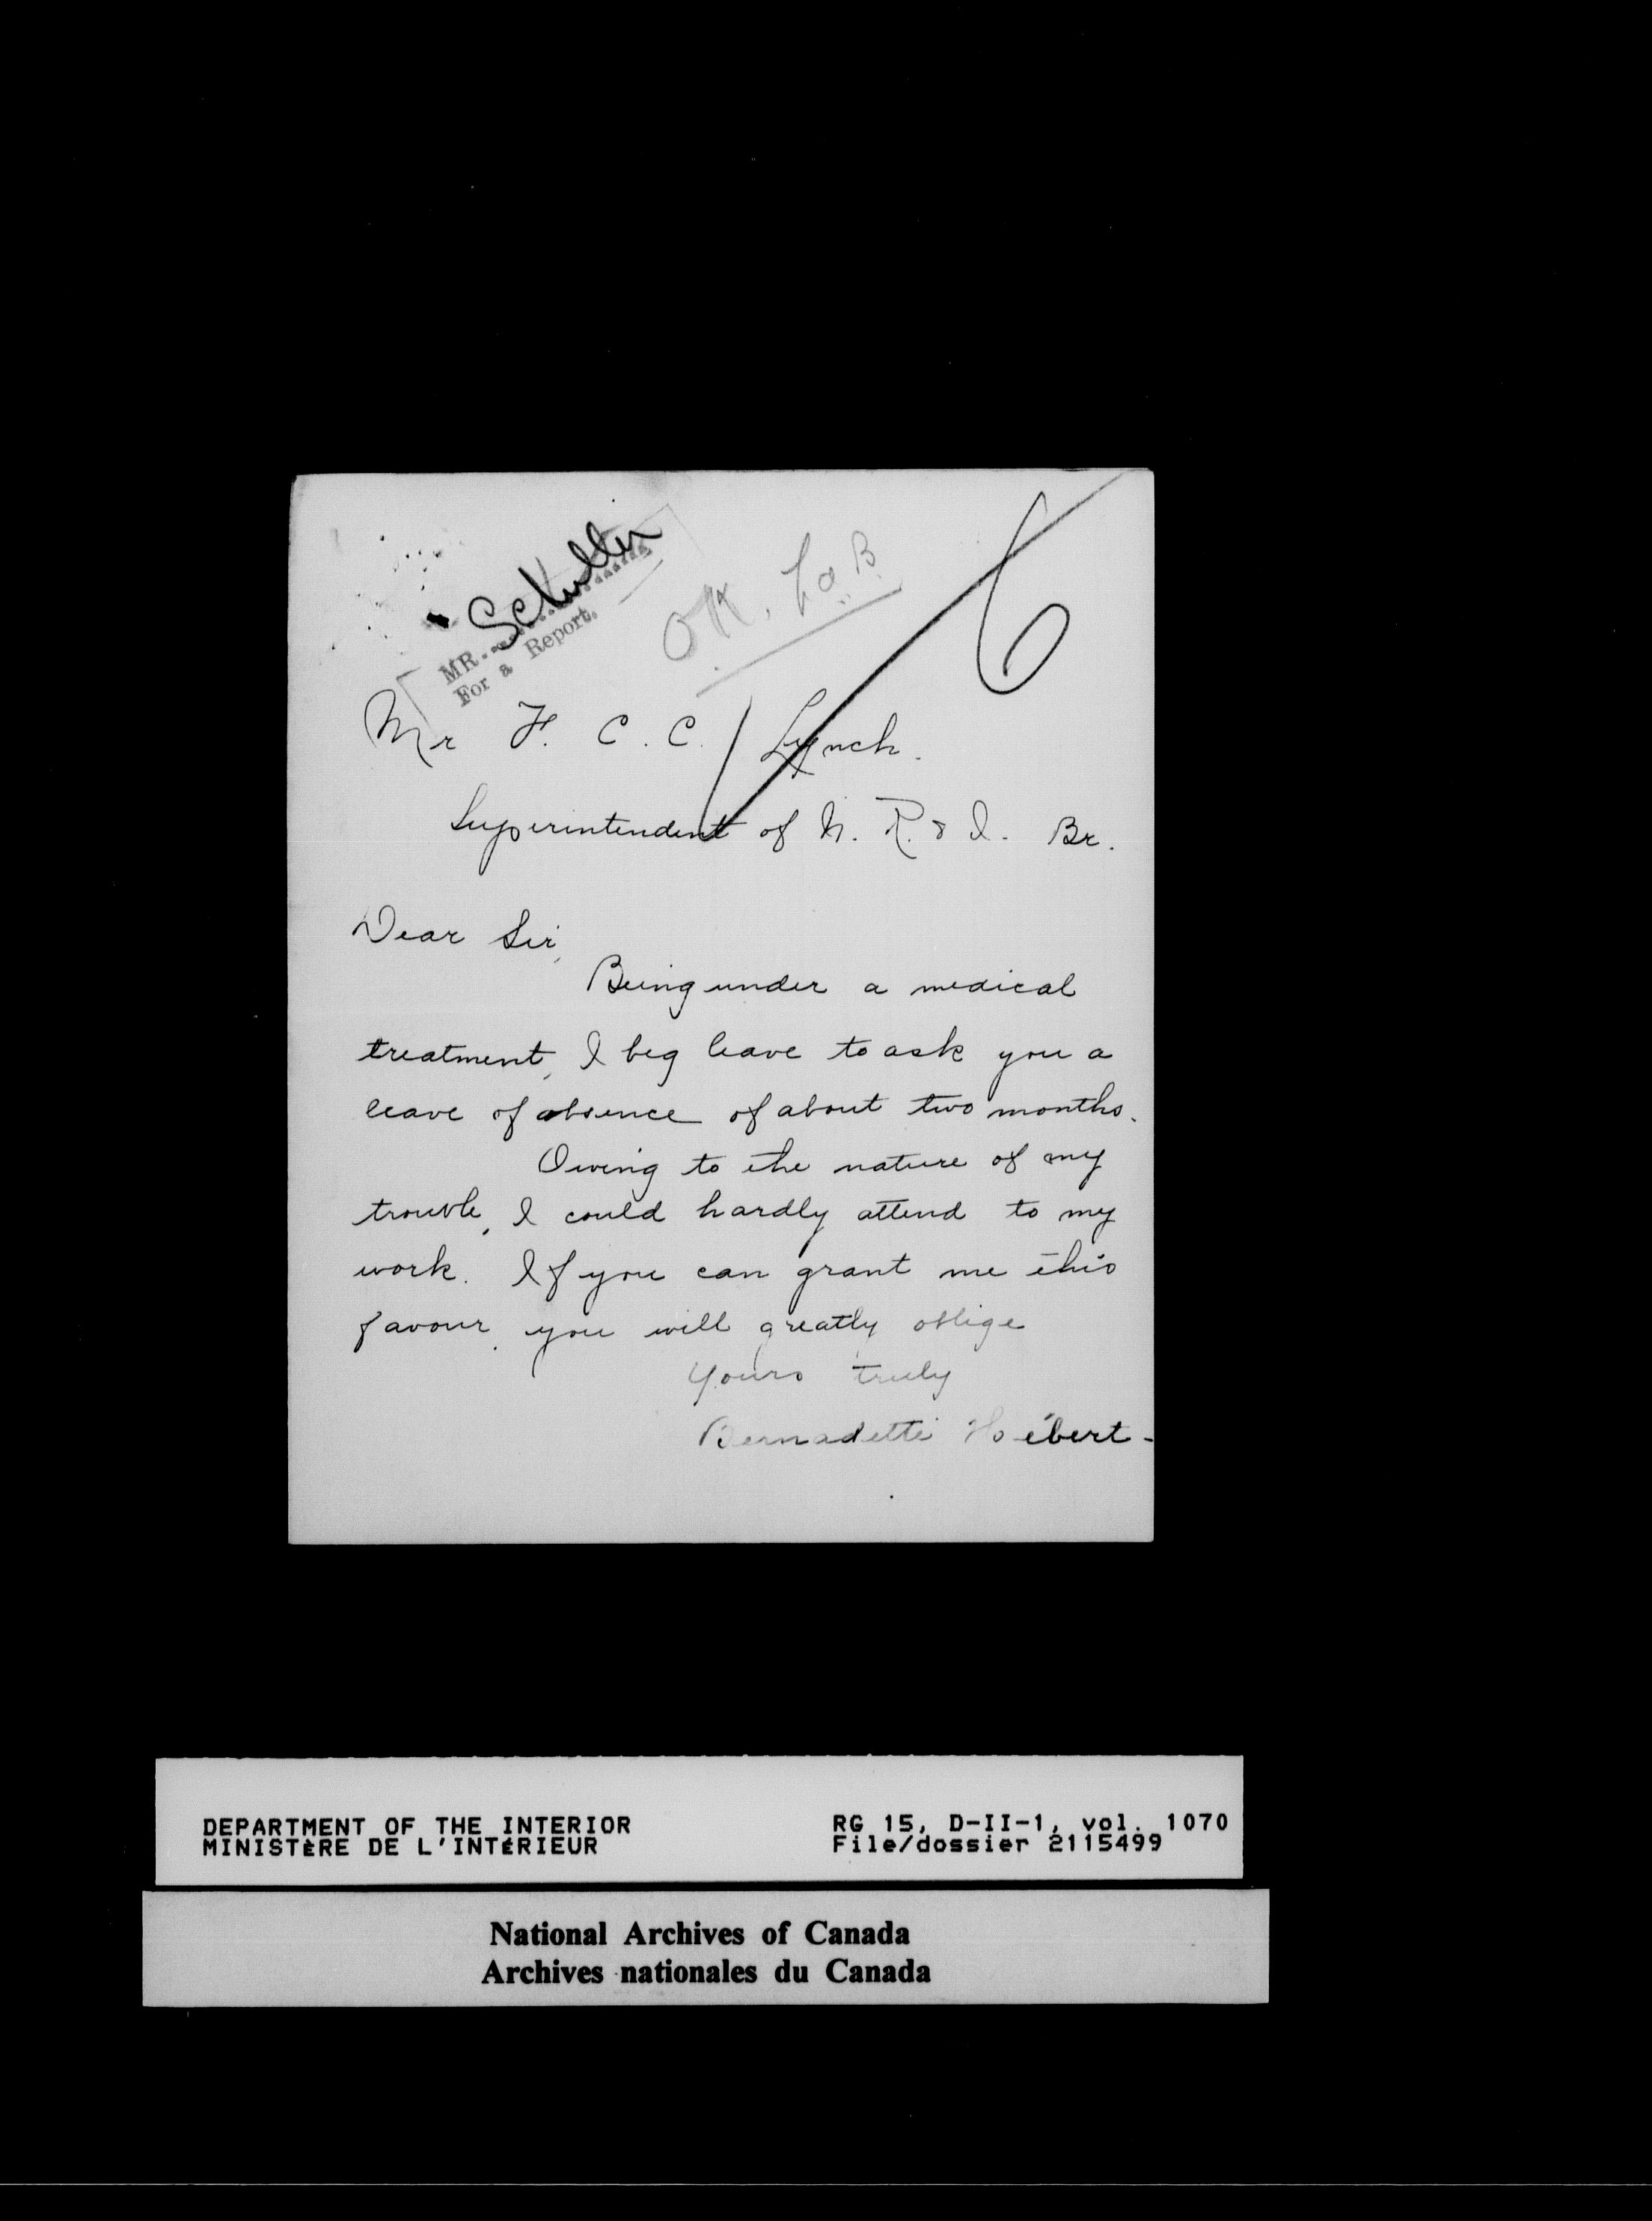 MR. Schuller
For a Report.
OK.
6
Mr F. C. C. Lynch.
Superintendent of N. R. & I. Br.
Dear Sir,
Being under a medical
treatment, I beg leave to ask you a
leave of absence of about two months.
Owing to the nature of my
trouble, I could hardly attend to my
work. If you can grant me this
favour, you will greatly oblige
Yours truly
Bernadette Hébert-
DEPARTMENT OF THE INTERIOR
MINISTÈRE DE L'INTÉRIEUR
RG 15, D-II-1, vol. 1070
File/dossier 2115499
National Archives of Canada
Archives nationales du Canada